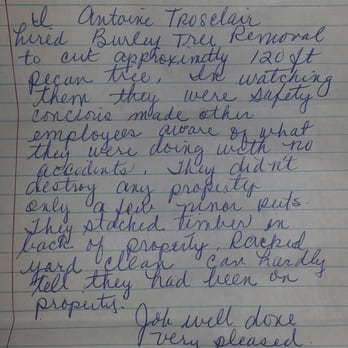 I Antoine Trosclair
hired Burley Tree Removal
to cut approximtly 120 ft
pecan tree. In watching
them they were safety
concious made other
employees aware of what
they were doing with no
accidents. They didn't
destroy any property
only a few minor ruts.
They stacked timber in
back of property. Racked
yard clean can hardly
tell they had been on
property.
Job well done
very pleased.